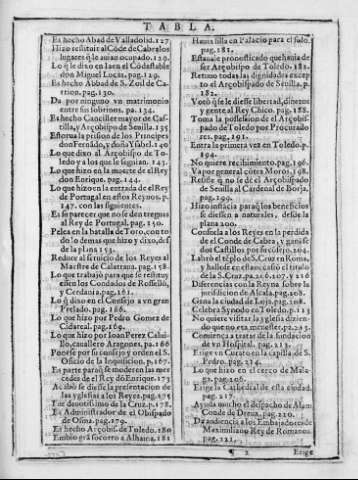 TABLA.
Es hecho Abad de Valladolid. 127
Hizo restituir al Cõde de Cabra los
lugares q̃ le auian ocupado. 129.
Lo q̃ le dixo en Iaen el Cõdestable
don Miguel Lucas. pag. 129.
Es hecho Abbad de S. Zoil de Carrion. pag. 130.
Da por ninguno vn matrimonio
entre sus sobrinos. pag. 134.
Es hecho Canciller mayor de Castilla, y Arçobispo de Seuilla. 135
Estorua la prision de los Principes
don Fernãdo, y doña Ysabel. 140
Lo que dixo al Arçobispo de Toledo
y a los que le seguian. 143.
Lo que hizo en la muerte de el Rey
don Enrique. pag. 144.
Lo que hizo en la entrada de el Rey
de Portugal en estos Reynos. p.
147. con las siguientes.
Es de parecer que no se den treguas
al Rey de Portugal. pag. 150.
Pelea en la batalla de Toro, con todo
lo demas que hizo y dixo, desde
la plana. 153.
Reduce al seruicio de los Reyes al
Maestre de Calatraua. pag. 158.
Lo que trabajò para que se restituyessen
los Condados de Rosellò,
y Cerdania. pag. 161.
Lo q̃ dixo en el Consejo a vn gran
Prelado. pag. 166.
Lo que hizo por Pedro Gomez de
Cidareal. pag. 169.
Lo que hizo por Ioan Perez Cabuillo,
cauallero Aragones. pa. 166
Ponese por su consejo y orden el S.
Oficio de la Inquisicion. p. 167.
Es parte para q̃ se moderen las mercedes
de el Rey dõ Enrique. 173
Acabò se diesse la presentacion de
las yglesias a los Reyes. pag. 175
Fue deuotissimo de la Cruz. p. 178.
Es Administrador de el Obispado
de Osma. pag. 179.
Es hecho Arçobis. de Toledo. 180
Embiò grã socorro a Alhama. 181
Hauia silla en Palacio para el solo.
pag. 181.
Estauale pronosticado que hauia de
ser Arçobispo de Toledo. 181.
Retuuo todas las dignidades excepto
el Arçobispado de Seuilla. p.
182.
Votò q̃ se le diesse libertad, dineros
y gente al Rey Chico. pag. 188.
Toma la possession de el Arçobispado
de Toledo por Procuradores.
pag. 191.
Entra la primera vez en Toledo. p.
194.
No quiere recibimiento. pag. 196.
Va por general côtra Moros. 198.
Resiste q̃ no se dè el Arçobispado
de Seuilla al Cardenal de Borja.
pag. 199.
Hizo instācia para q̃ los beneficios
se diessen a naturales, desde la
plana 200.
Consuela a los Reyes en la perdida
de el Conde de Cabra, y ganase
dos Castillos por su cõsejo. 204.
Labrò el tẽplo de S. Cruz en Roma,
y hallose en este caso el titulo de
la S. Cruz. pa. 206. 207. y 216
Diferencias con la Reyna sobre la
juridicion de Alcala. pag. 208.
Gana la ciudad de Loja. pag. 208.
Celebra Synodo en Toledo. p. 213
No quiere visitar la yglesia diziendo
que no era menester. pa. 213.
Comiença a tratar de la fundacion
de vn Hospital. pag. 213.
Erige vn Curato en la capilla de S.
Pedro. pag. 214.
Lo que hizo en el cerco de Malaga.
pag. 216.
Erige la Cathedral de esta ciudad.
pag. 217.
Ayuda mucho el despacho de
Conde de Denia. pag. 220.
Da audiencia a los Embajadores de
Maximiliano Rey de Romanos.
pag. 221.
2 Erige